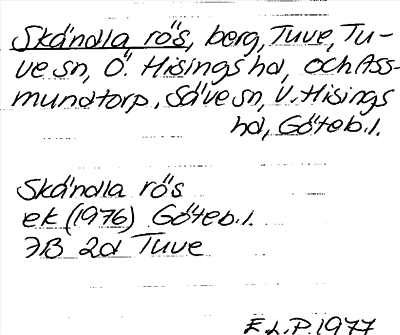 Skándla rö̀s, berg, Tuve, Tu-
ve sn, Ö. Hisings hd, och Ass-
mundtorp, Säve sn, V. Hisings
hd, Göteb. l.
Skándla rö̀s
ek (1976) Göteb. l.
7B 2d Tuve
E.L.P. 1977